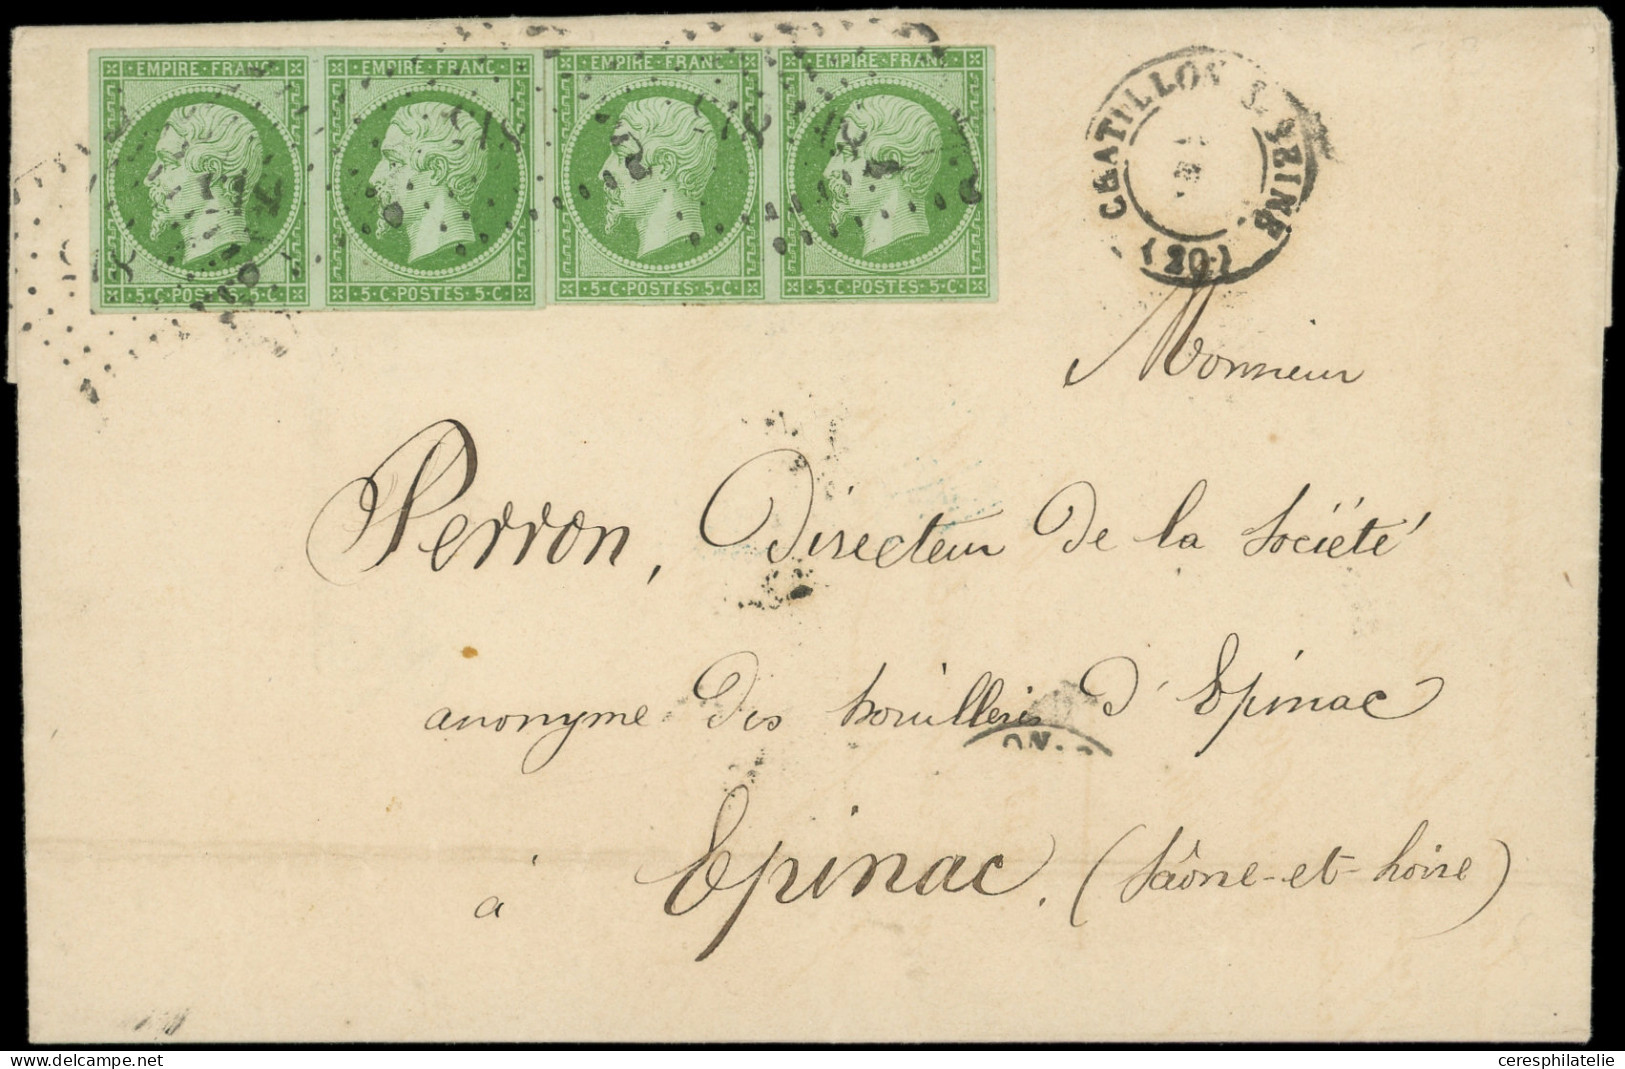 EMPIRE · FRANC · EMPIRE · FRANC · EMPIRE · FRANC · EMPIRE · FRANC ·
5 · C · POSTES · 5 · C · 5 · C · POSTES · 5 · C · 5 · C · POSTES · 5 · C · 5 · C · POSTES · 5 · C ·
815 815
CHATILLON S. SEINE
(20)
Monsieur
Perron, Directeur de la Société
anonyme des houillères d'Epinac
à Epinac. (Saône-et-Loire)
www.delcampe.net
ceresphilatelie